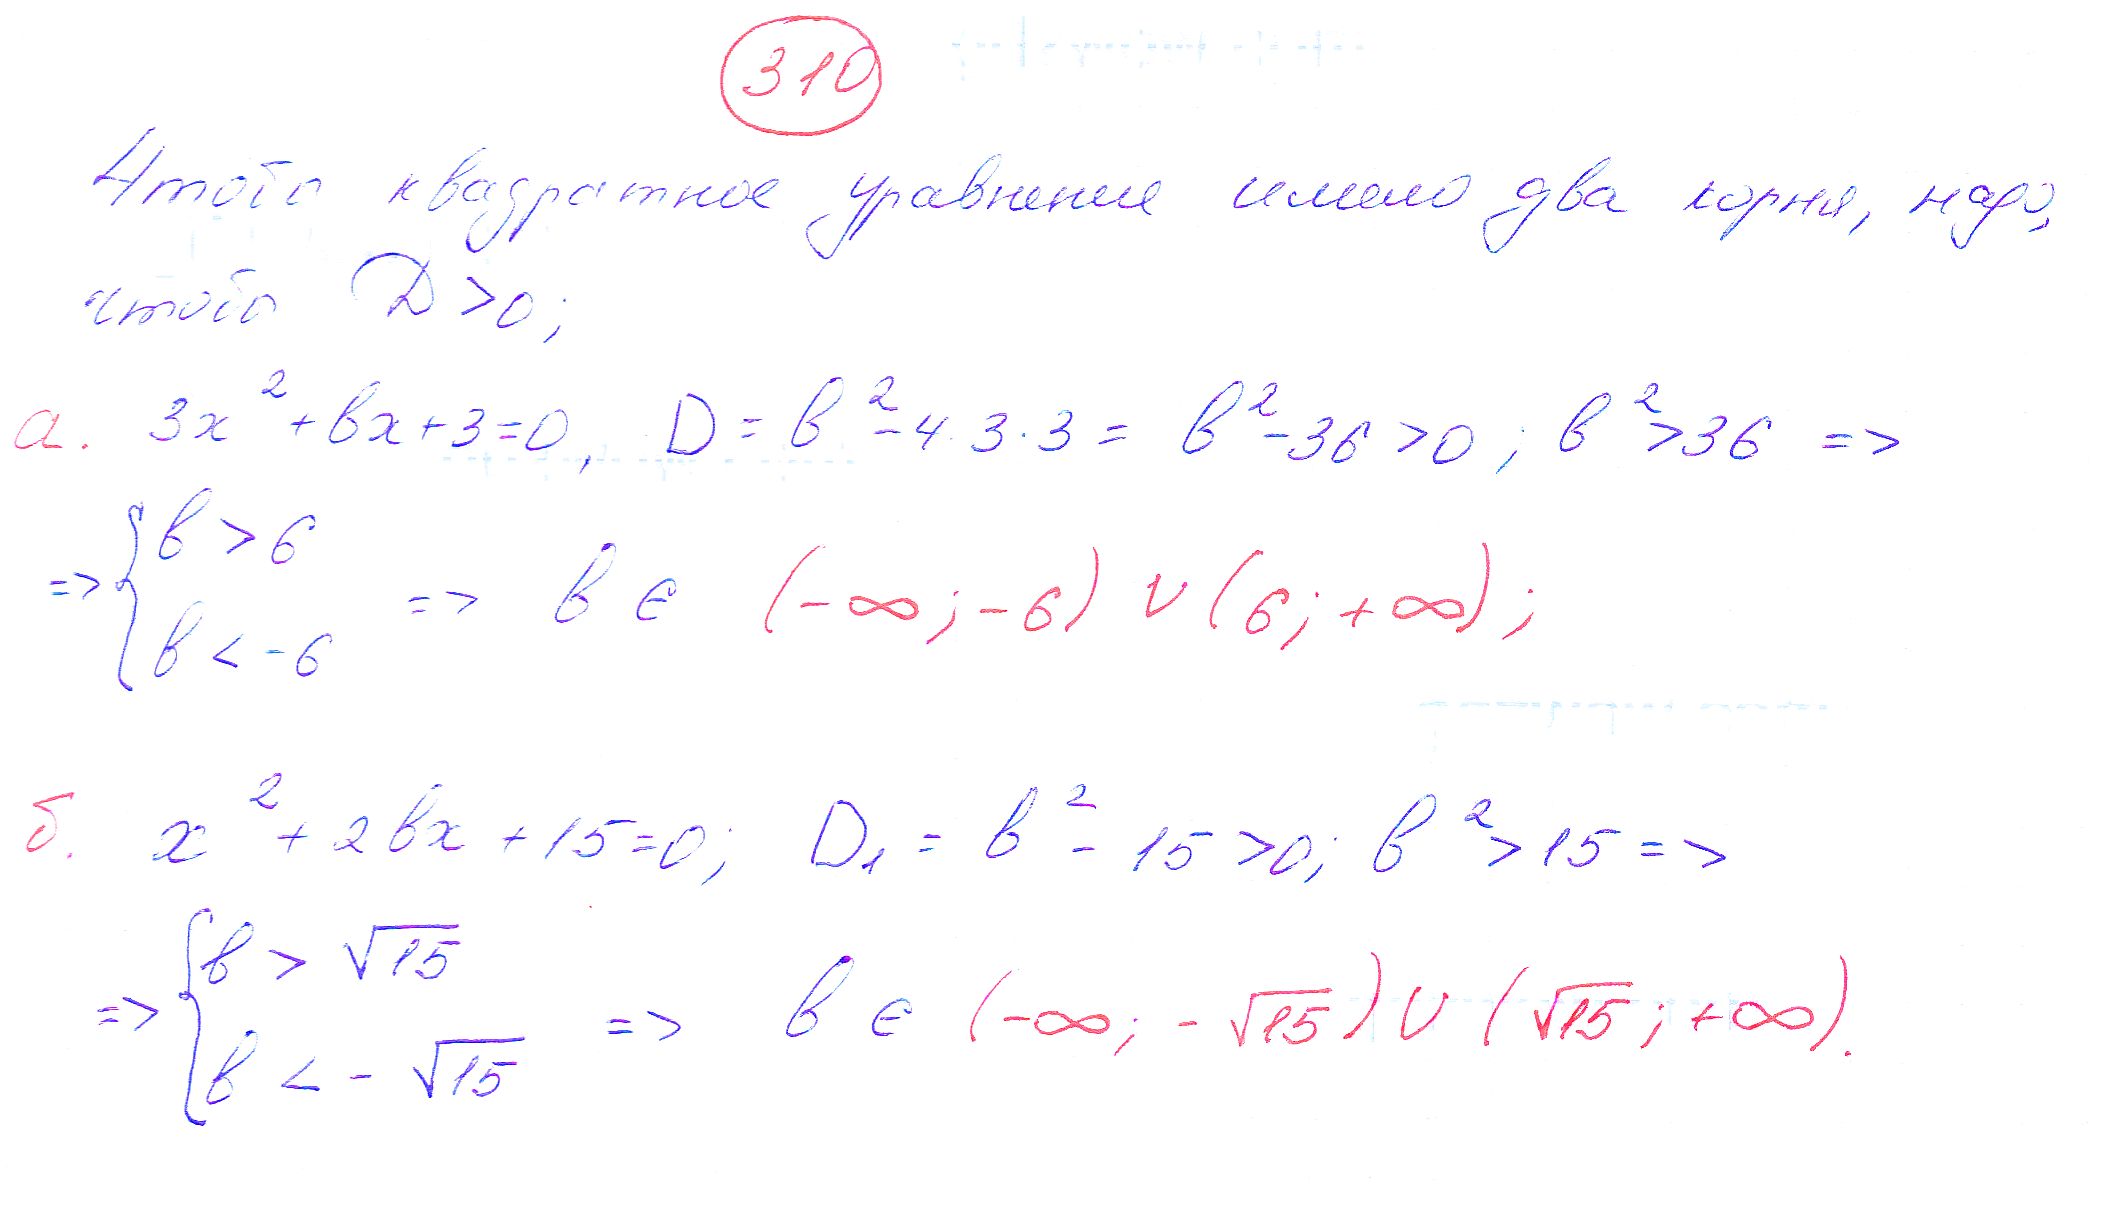 310
Чтобы квадратное уравнение имело два корня, надо,
чтобы D>0;
а. 3x²+bx+3=0, D=b²-4·3·3=b²-36>0; b²>36 =>
=> { b>6
b<-6 => b ∈ (-∞;-6) ∪ (6;+∞);
б. x²+2bx+15=0; D₁=b²-15>0; b²>15 =>
=> { b>√15
b<-√15 => b ∈ (-∞;-√15) ∪ (√15;+∞).